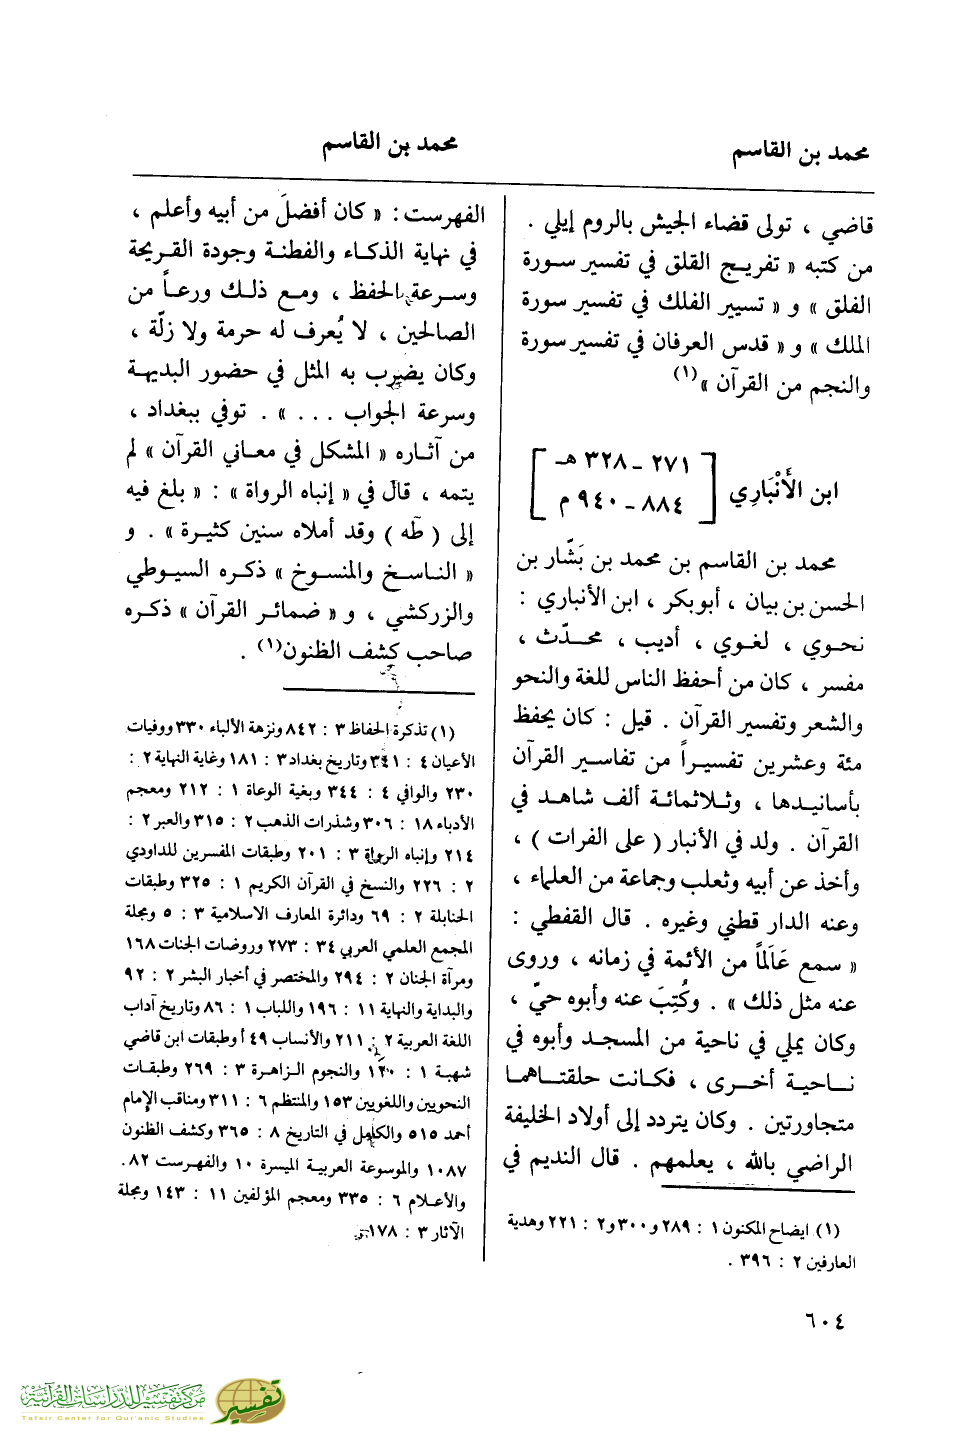 محمد بن القاسم
محمد بن القاسم
قاضي ، تولى قضاء الجيش بالروم إيلي .
من كتبه « تفريج القلق في تفسير سورة
الفلق » و « تسيير الفلك في تفسير سورة
الملك » و « قدس العرفان في تفسير سورة
والنجم من القرآن »(١)
ابن الأَنْبَارِي [ ٢٧١ ـ ٣٢٨ هـ
٨٨٤ ـ ٩٤٠ م ]
محمد بن القاسم بن محمد بن بَشّار بن
الحسن بن بيان ، أبو بكر ، ابن الأنباري :
نحوي ، لغوي ، أديب ، محدّث ،
مفسر ، كان من أحفظ الناس للغة والنحو
والشعر وتفسير القرآن . قيل : كان يحفظ
مئة وعشرين تفسيراً من تفاسير القرآن
بأسانيدها ، وثلاثمائة ألف شاهد في
القرآن . ولد في الأنبار ( على الفرات ) ،
وأخذ عن أبيه وثعلب وجماعة من العلماء ،
وعنه الدار قطني وغيره . قال القفطي :
« سمع عَالَماً من الأئمة في زمانه ، وروى
عنه مثل ذلك » . وكُتِبَ عنه وأبوه حيّ ،
وكان يملي في ناحية من المسجد وأبوه في
ناحية أخرى ، فكانت حلقتاهما
متجاورتين . وكان يتردد إلى أولاد الخليفة
الراضي بالله ، يعلمهم . قال النديم في
(١) ايضاح المكنون ١ : ٢٨٩ و٣٠٠ و٢ : ٢٢١ وهدية
العارفين ٢ : ٣٩٦ .
الفهرست : « كان أفضلَ من أبيه وأعلم ،
في نهاية الذكاء والفطنة وجودة القريحة
وسرعة الحفظ ، ومع ذلك ورعاً من
الصالحين ، لا يُعرف له حرمة ولا زلّة ،
وكان يضرب به المثل في حضور البديهة
وسرعة الجواب . . . » . توفي ببغداد ،
من آثاره « المشكل في معاني القرآن » لم
يتمه ، قال في « إنباه الرواة » : « بلغ فيه
إلى ( طه ) وقد أملاه سنين كثيرة » . و
« الناسخ والمنسوخ » ذكره السيوطي
والزركشي ، و « ضمائر القرآن » ذكره
صاحب كشف الظنون(١) .
(١) تذكرة الحفاظ ٣ : ٨٤٢ ونزهة الألباء ٣٣٠ ووفيات
الأعيان ٤ : ٣٤١ وتاريخ بغداد ٣ : ١٨١ وغاية النهاية ٢ :
٢٣٠ والوافي ٤ : ٣٤٤ وبغية الوعاة ١ : ٢١٢ ومعجم
الأدباء ١٨ : ٣٠٦ وشذرات الذهب ٢ : ٣١٥ والعبر ٢ :
٢١٤ وإنباه الرواة ٣ : ٢٠١ وطبقات المفسرين للداودي
٢ : ٢٢٦ والنسخ في القرآن الكريم ١ : ٣٢٥ وطبقات
الحنابلة ٢ : ٦٩ ودائرة المعارف الاسلامية ٣ : ٥ ومجلة
المجمع العلمي العربي ٣٤ : ٢٧٣ وروضات الجنات ١٦٨
ومرآة الجنان ٢ : ٢٩٤ والمختصر في أخبار البشر ٢ : ٩٢
والبداية والنهاية ١١ : ١٩٦ واللباب ١ : ٨٦ وتاريخ آداب
اللغة العربية ٢ : ٢١١ والأنساب ٤٩ أ وطبقات ابن قاضي
شهبة ١ : ١٢٠ والنجوم الزاهرة ٣ : ٢٦٩ وطبقات
النحويين واللغويين ١٥٣ والمنتظم ٦ : ٣١١ ومناقب الإمام
أحمد ٥١٥ والكامل في التاريخ ٨ : ٣٦٥ وكشف الظنون
١٠٨٧ والموسوعة العربية الميسرة ١٠ والفهرست ٨٢ .
والأعلام ٦ : ٣٣٥ ومعجم المؤلفين ١١ : ١٤٣ ومجلة
الآثار ٣ : ١٧٨
٦٠٤
مركز تفسير للدراسات القرآنية
Tafsir Center for Qur'anic Studies
تفسير